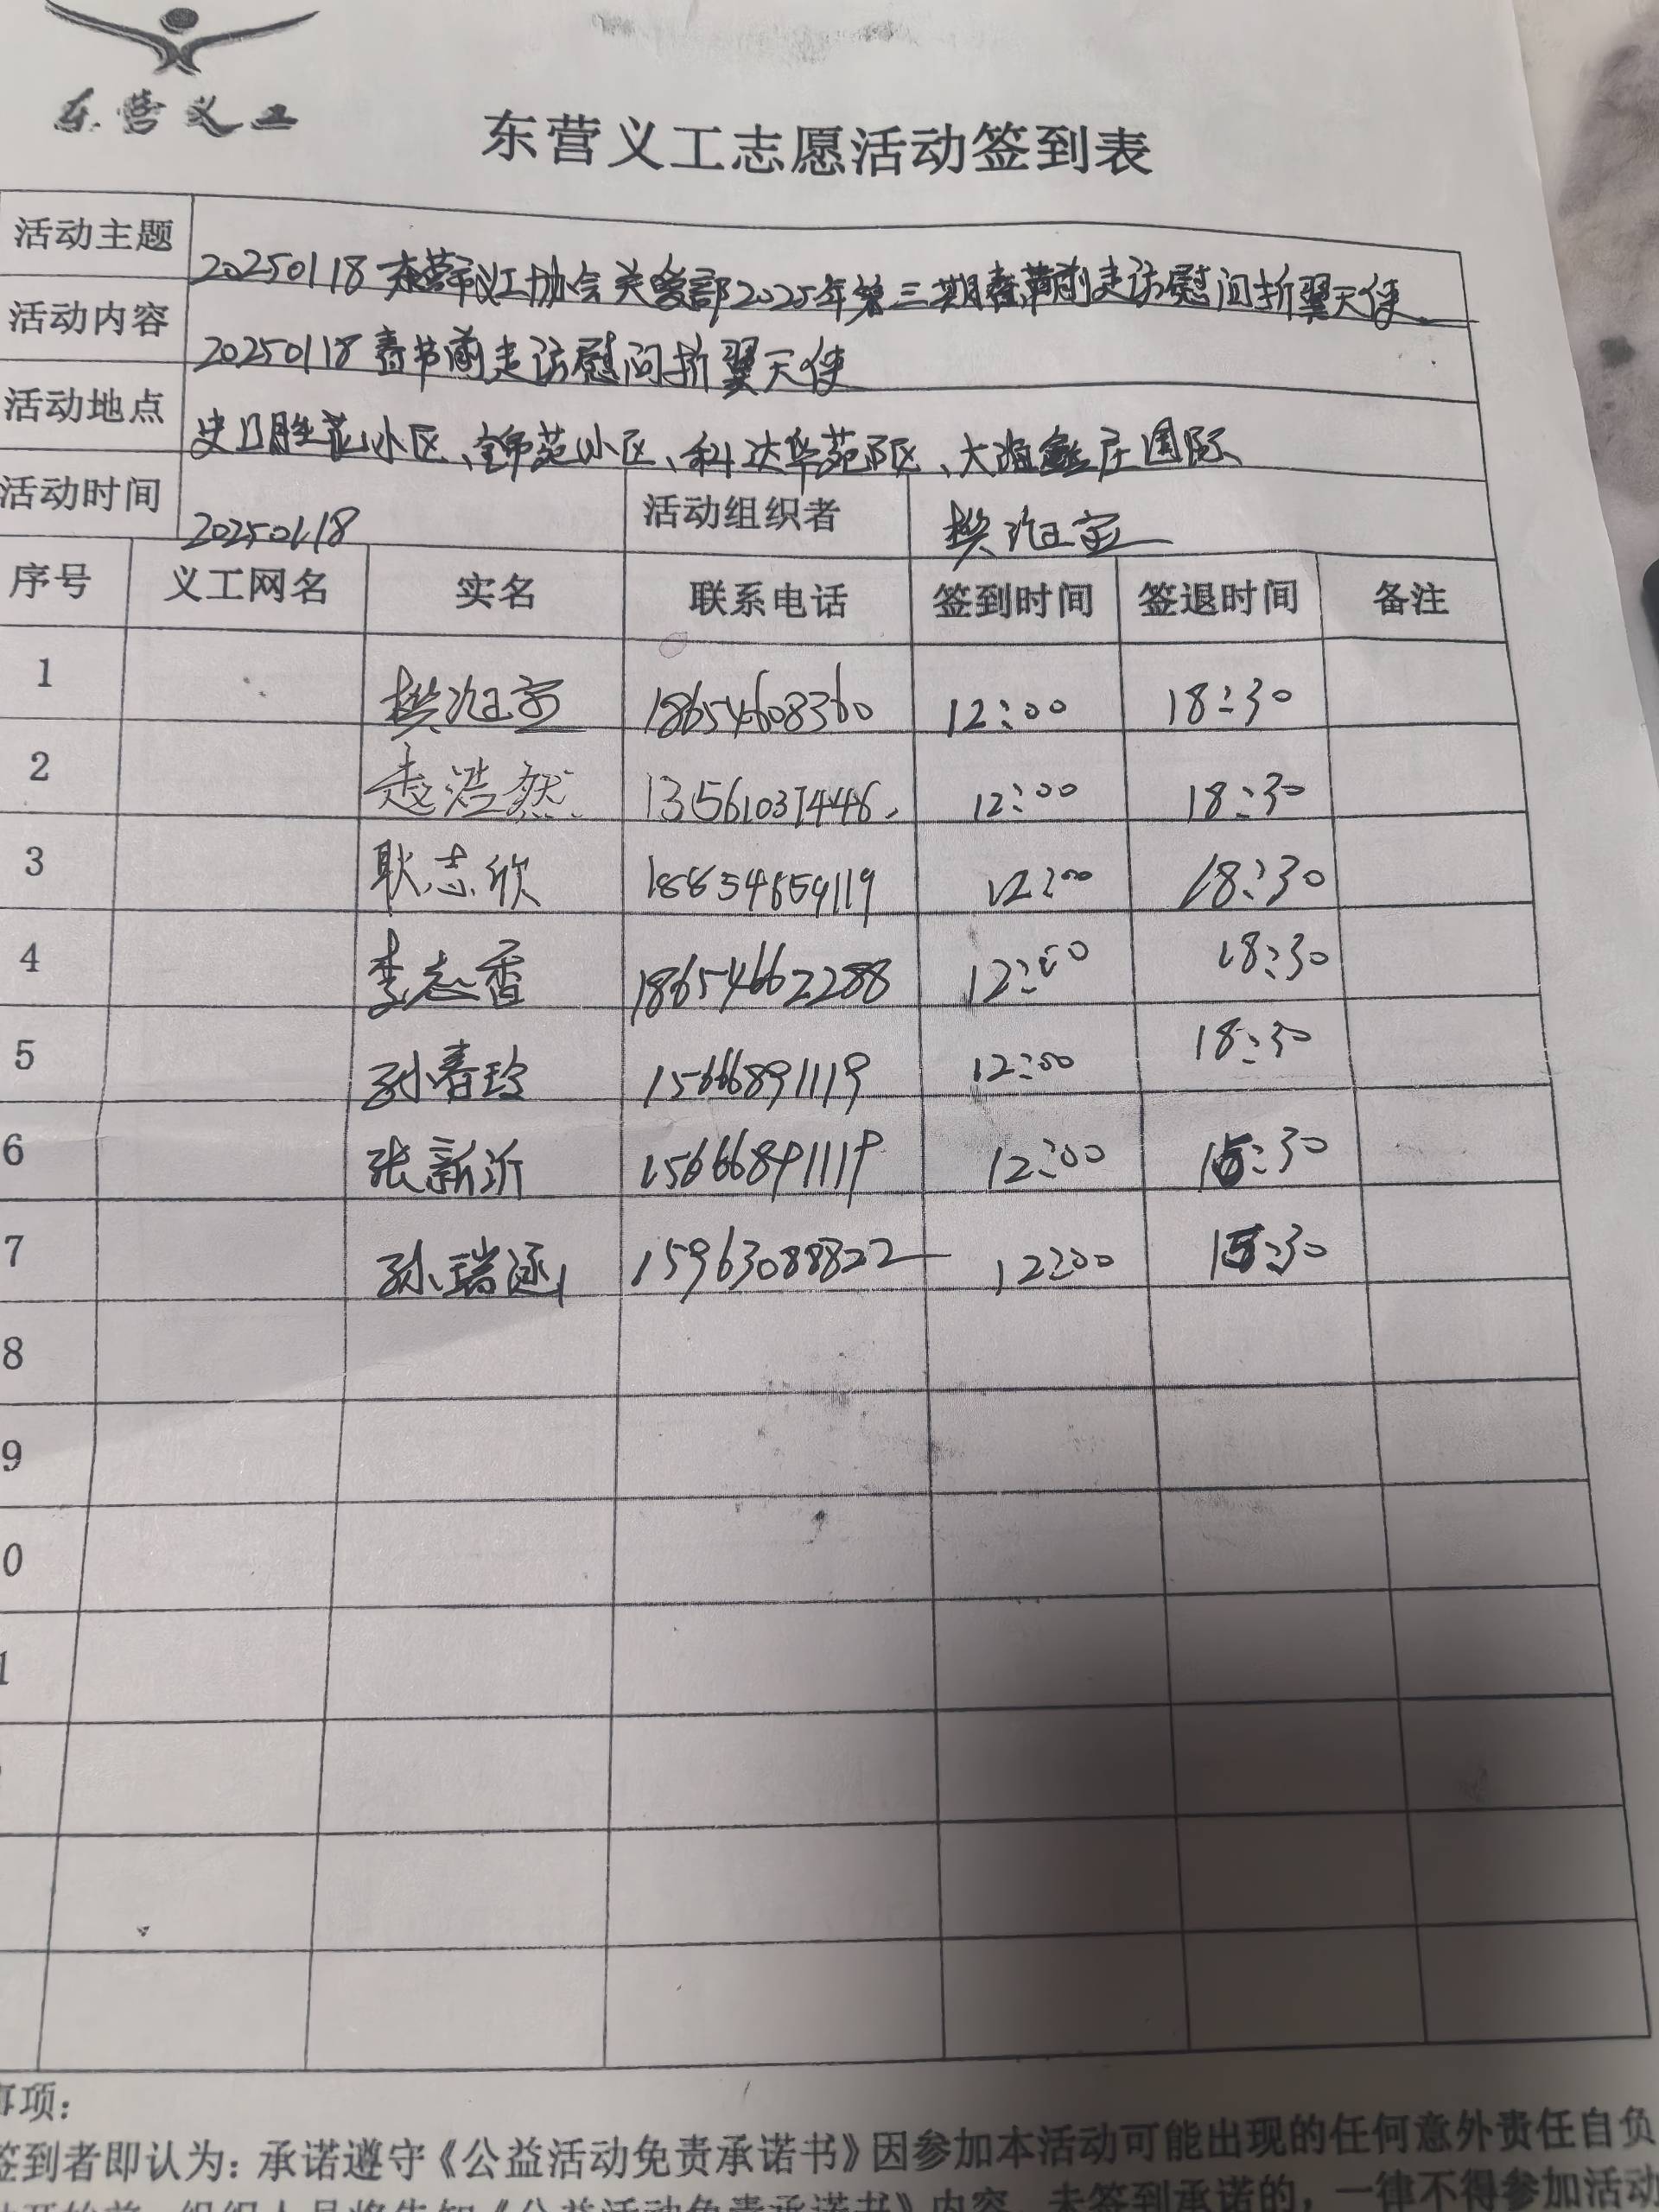 东营义工
东营义工志愿活动签到表
活动主题 20250118东营市义工协会关爱部2025年第三期春节前走访慰问折翼天使
活动内容 20250118春节前走访慰问折翼天使
活动地点 史口胜苑小区、锦苑小区、科达华苑小区、大海 庄国际
活动时间 20250118 活动组织者 樊汝宝
序号 义工网名 实名 联系电话 签到时间 签退时间 备注
1 樊汝宝 18654608360 12:00 18:30
2 赵浩然 13561037446 12:00 18:30
3 耿志欣 18854659119 12:00 18:30
4 李志香 18654662288 12:00 18:30
5 孙春玲 15666891119 12:00 18:30
6 张新沂 15666891119 12:00 15:30
7 孙瑞涵 15963088822 12:00 15:30
8
9
0
1
事项：
签到者即认为：承诺遵守《公益活动免责承诺书》因参加本活动可能出现的任何意外责任自负
动开始前，组织人员将告知《公益活动免责承诺书》内容，未签到承诺的，一律不得参加活动